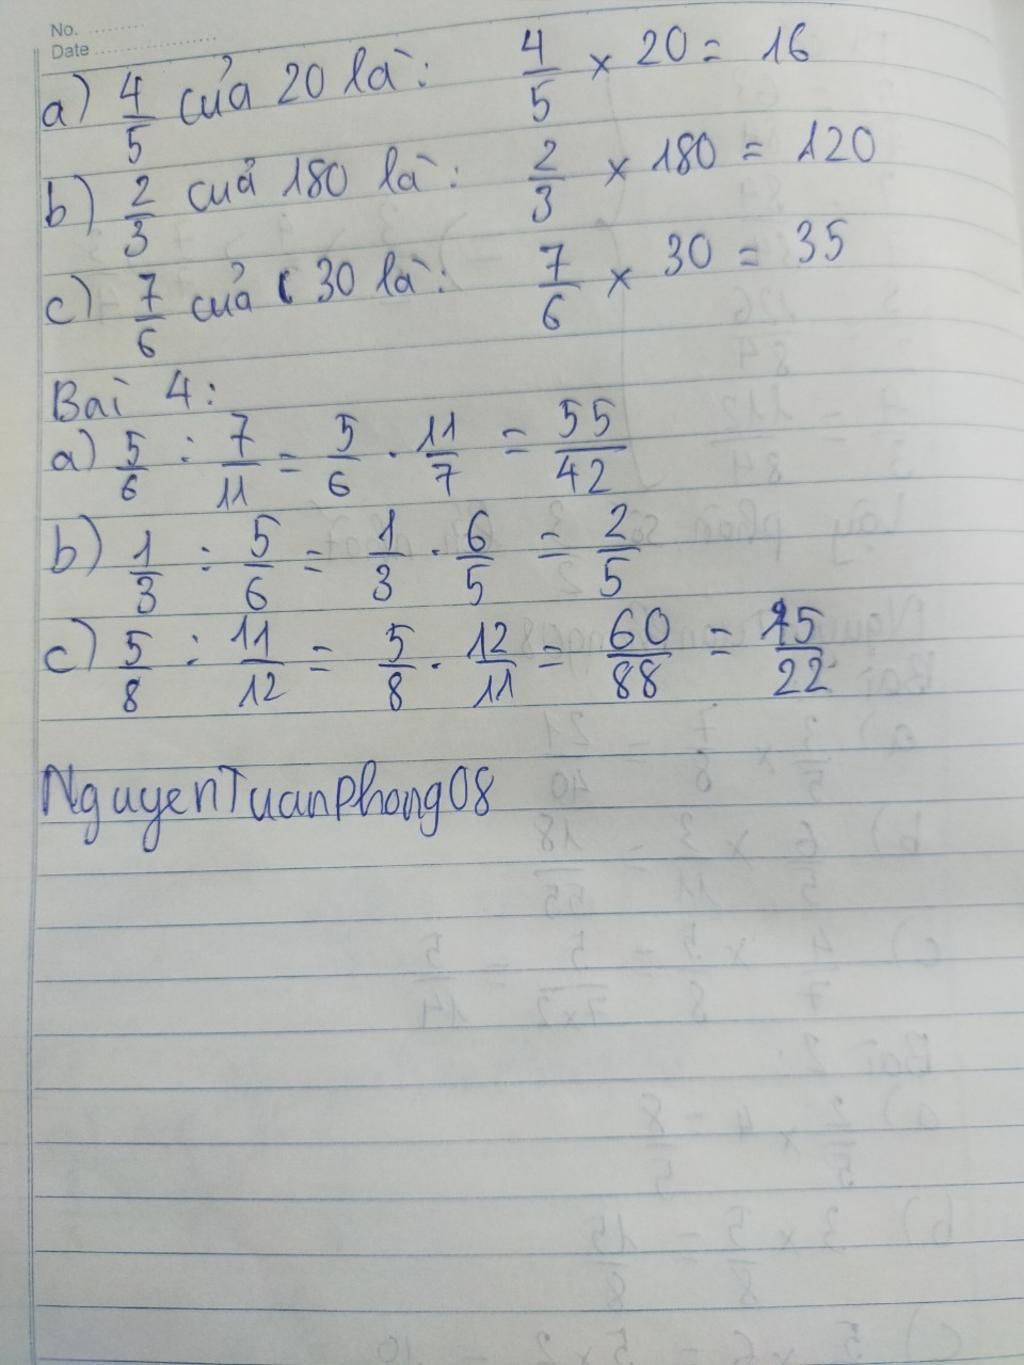 No. ..........
Date ......................
a) 4/5 của 20 là: 4/5 × 20 = 16
b) 2/3 cuả 180 là: 2/3 × 180 = 120
c) 7/6 cuả 30 là: 7/6 × 30 = 35
Bai 4:
a) 5/6 : 7/11 = 5/6 . 11/7 = 55/42
b) 1/3 : 5/6 = 1/3 . 6/5 = 2/5
c) 5/8 : 11/12 = 5/8 . 12/11 = 60/88 = 15/22
NguyenTuanPhong08